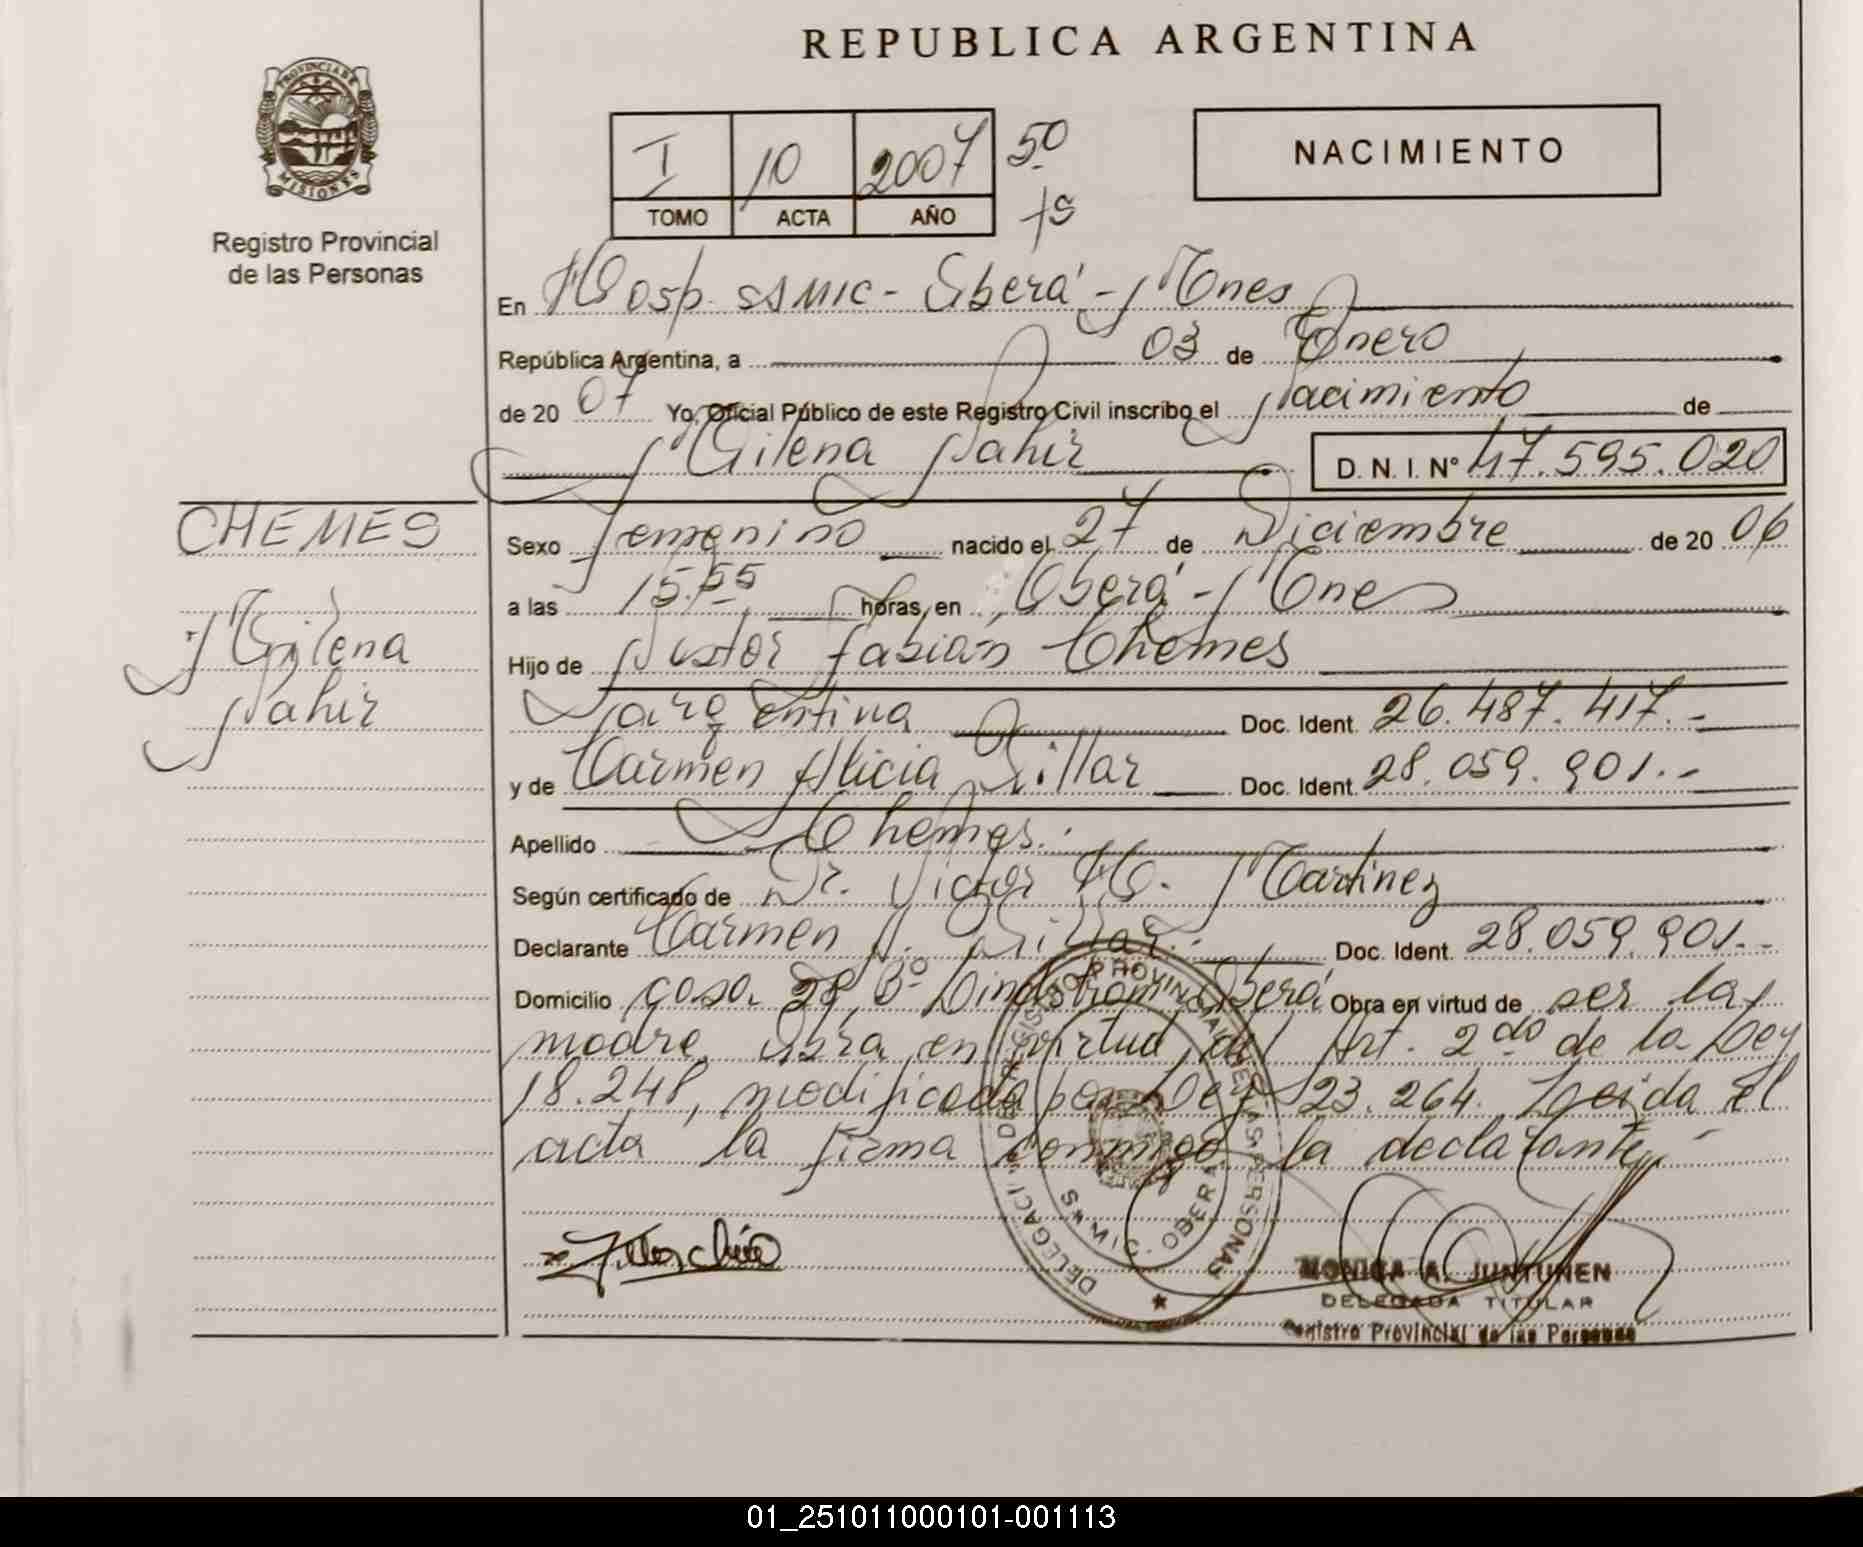 REPUBLICA ARGENTINA
PROVINCIA DE MISIONES
Registro Provincial
de las Personas
I 10 2007 50
TOMO ACTA AÑO
NACIMIENTO
En Hosp. SAMIC - Oberá - Mnes
República Argentina, a 03 de Enero
de 20 07 Yo, Oficial Público de este Registro Civil inscribo el Nacimiento de
Milena Nahir D. N. I. Nº 47.595.020
CHEMES
Milena
Nahir
Sexo Femenino nacido el 27 de Diciembre de 20 06
a las 15.55 horas, en Oberá - Mnes
Hijo de Nestor Fabián Chemes
argentina Doc. Ident. 26.487.417.-
y de Carmen Alicia Villar Doc. Ident. 28.059.901.-
Apellido Chemes.
Según certificado de Dr. Victor H. Martinez
Declarante Carmen A. Villar.- Doc. Ident. 28.059.901.-
Domicilio casa 28 Bº Lindstrom Oberá Obra en virtud de ser la
madre. Obra en virtud del Art. 2do de la Ley
18.248, modificada por Ley 23.264. Leida el
acta la firma conmigo la declarante.-
REGISTRO PROVINCIAL DE LAS PERSONAS
OBERA
MONICA A. JUNTUNEN
DELEGADA TITULAR
Registro Provincial de las Personas
01_251011000101-001113